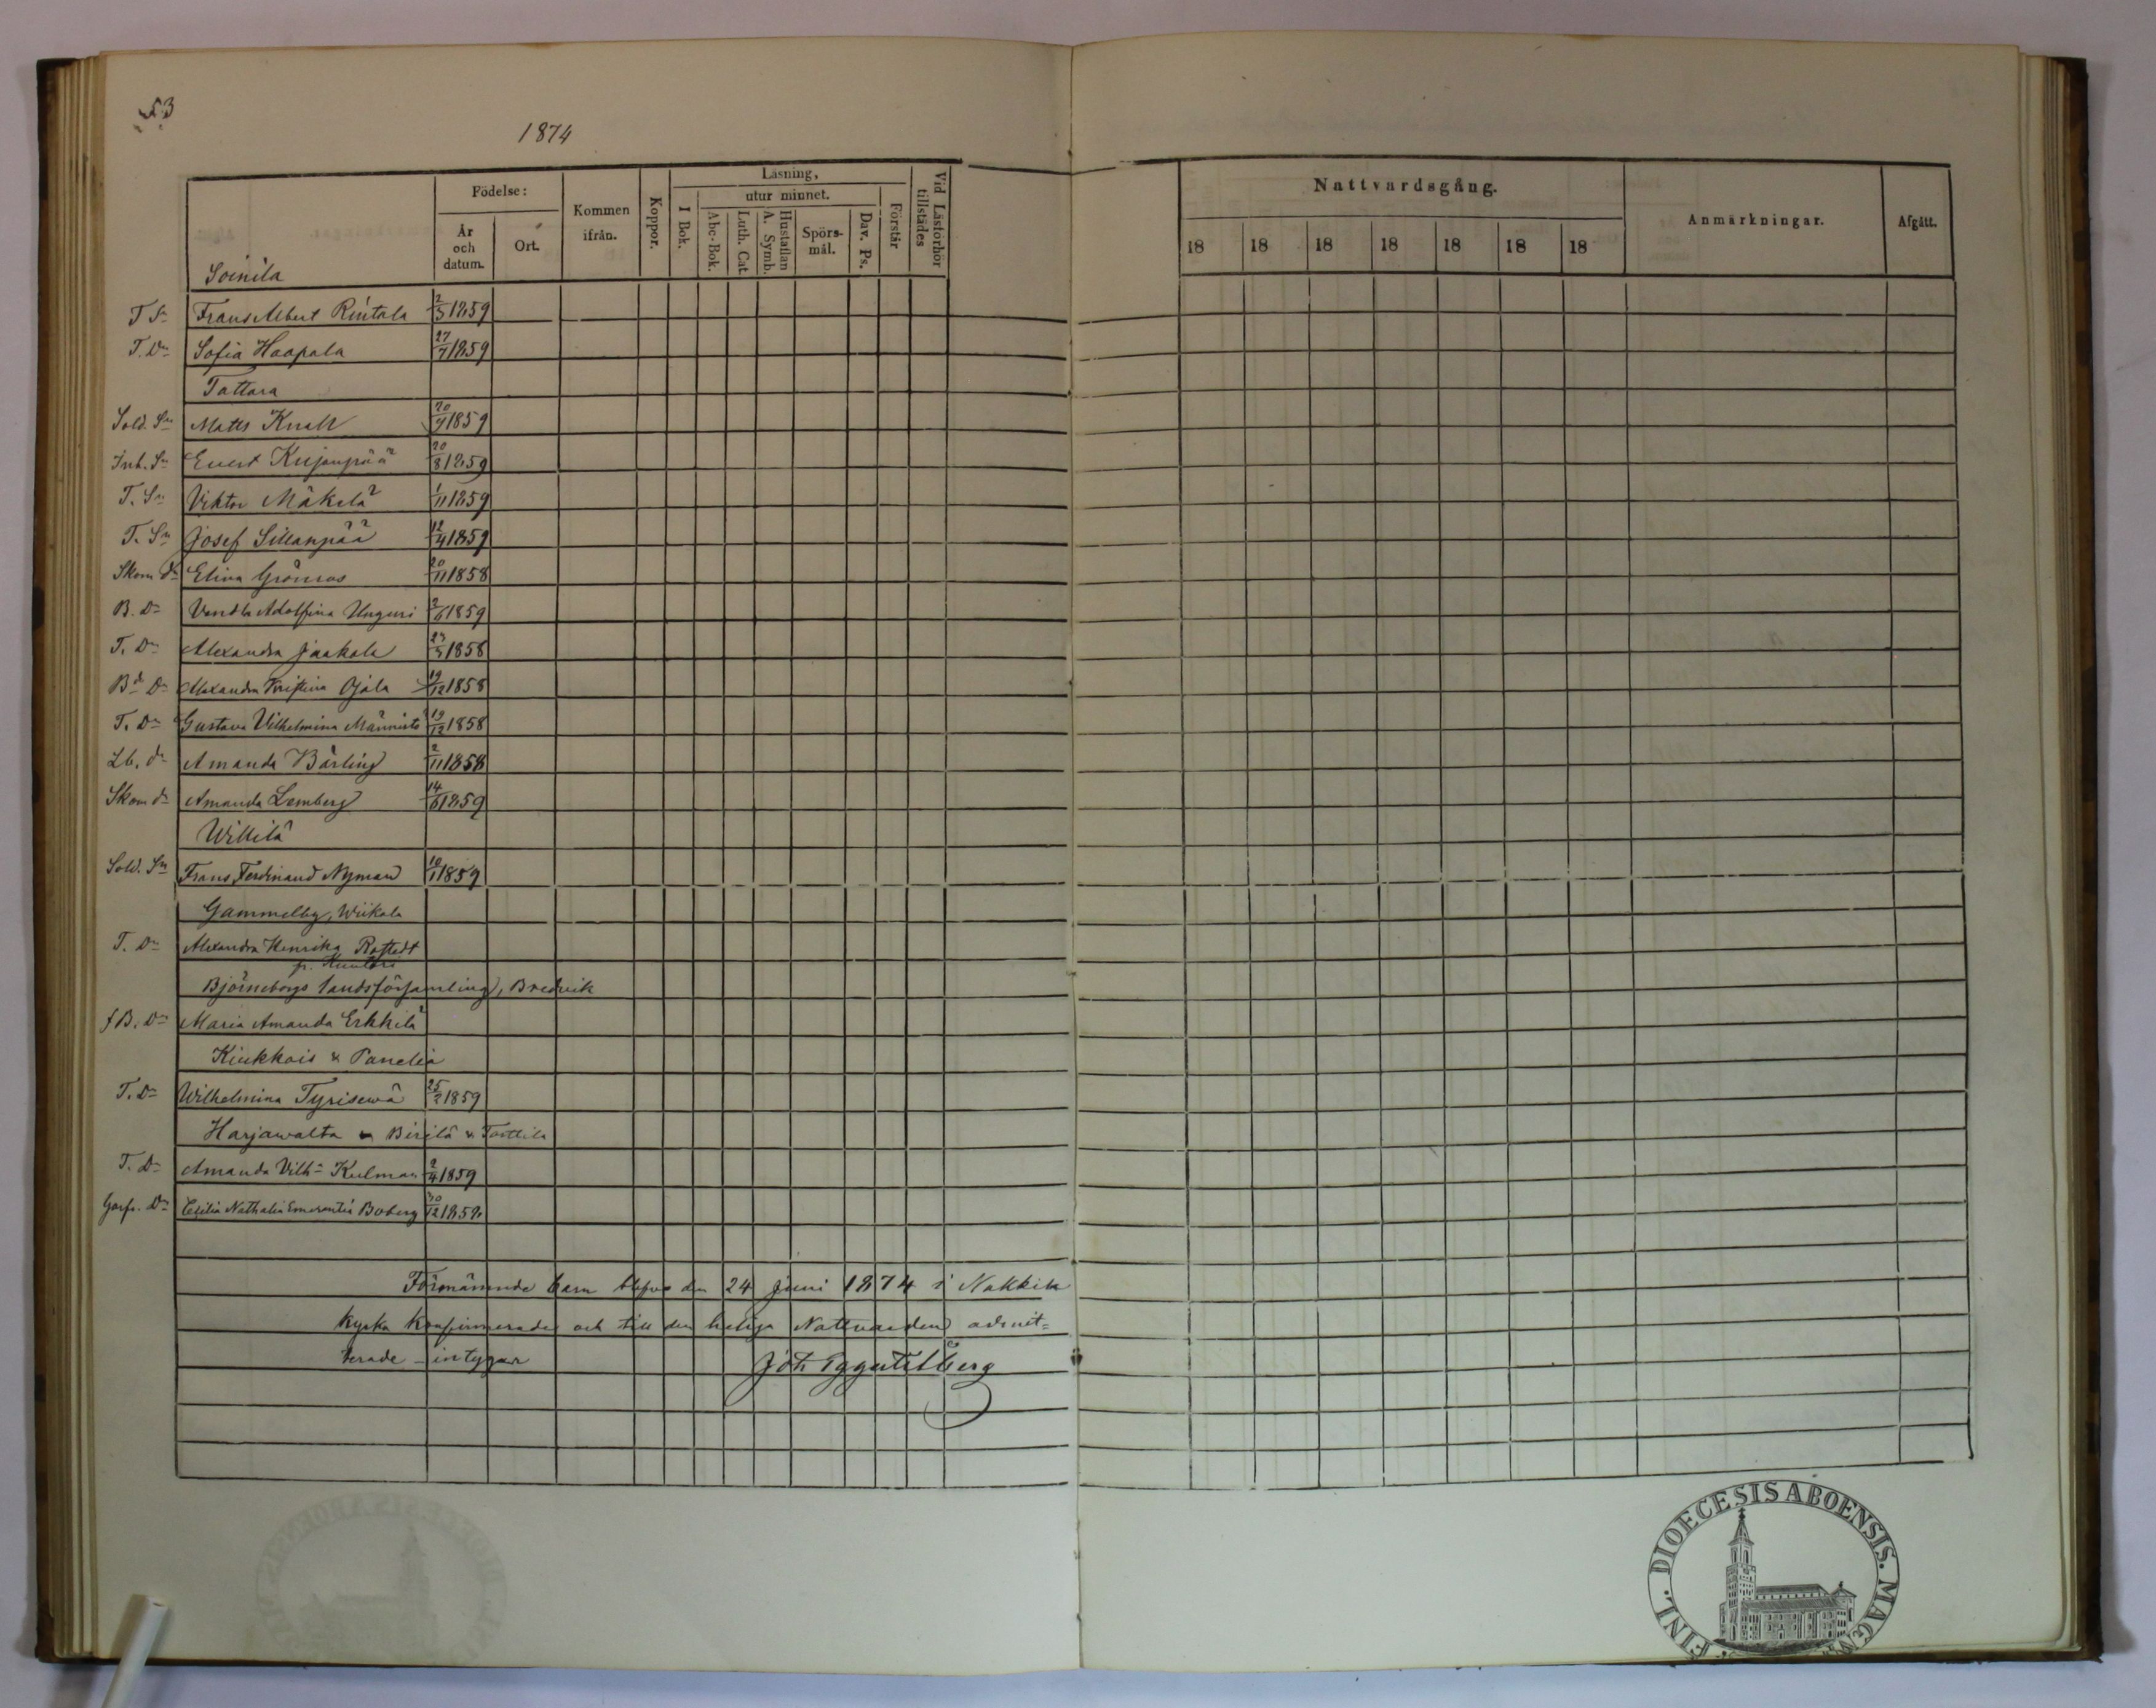 53
1874
Födelse:
År och datum.
Ort.
Kommen ifrån.
Koppor.
Läsning,
I Bok.
utur minnet.
Abc-Bok.
Luth. Cat.
Hustaflan A. Symb.
Spörsmål.
Dav. Ps.
Förstår
Vid Läsförhör tillstädes
Nattvardsgång.
18 18 18 18 18 18 18
Anmärkningar.
Afgått.
Soinila
T Sn Frans Albert Rintala 2/3 1859
T. Dn Sofia Haapala 27/7 1859
Tattara
Sold. Sn Matts Knall 20/9 1859
Inh. Sn Evert Kujanpää 20/8 1859
T. Sn Viktor Mäkelä 1/11 1859
T. Sn Josef Sillanpää 12/4 1859
Skom dn Elina Grönroos 20/11 1858
B. Dn Vendla Adolfina Unguri 2/6 1859
T. Dn Alexandra Jaakola 1858
Bd Dn Alexandra Kristina Ojala 19/12 1858
T. Dn Gustava Vilhelmina Männistö 19/12 1858
Lb. dn Amanda Bärling 2/11 1858
Skom dn Amanda Lemberg 14/6 1859
Willilä
Sold. Sn Frans Ferdinand Nyman 10/1 1859
Gammelby, Wiikala
T. Dn Alexandra Henrika Rostedt
fr. Kuntsi
Björneborgs landsförsamling, Bredvik
f B. Dn Maria Amanda Erkkilä
Kiukkois & Panelia
T. Dn Wilhelmina Tyrisevä 25/2 1859
Harjawalta Birilä & Torttila
T. Dn Amanda Vilh:a Kulman 2/4 1859
Garfv. Dn Cecilia Nathalia Emerentia Boberg 30/12 1858
Förnämnde barn blefvo den 24 Juni 1874 i Nakkila
kyrka konfirmerade och till den heliga Nattvarden admit=
terade – intygar Joh Eggertsberg
FINL. DIOECESIS ABOENSIS. MAGN.